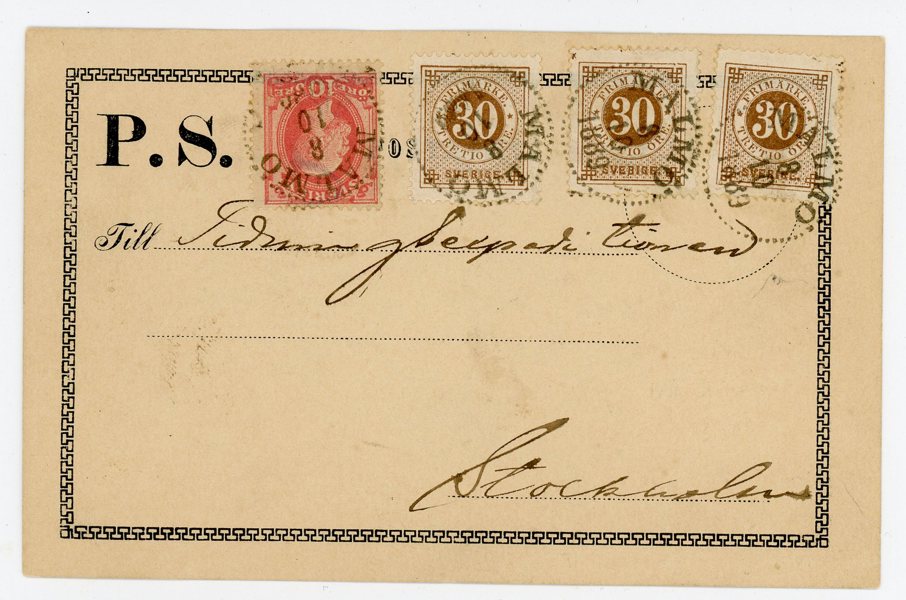 P. S.
10 ÖRE
SVERIGE
MALMÖ
10 8
FRIMÄRKE
30
TRETIO ÖRE
SVERIGE
MALMÖ
8
FRIMÄRKE
30
TRETIO ÖRE
SVERIGE
MALMÖ
FRIMÄRKE
30
TRETIO ÖRE
SVERIGE
MALMÖ
Till Tidningsexpeditionen
Stockholm